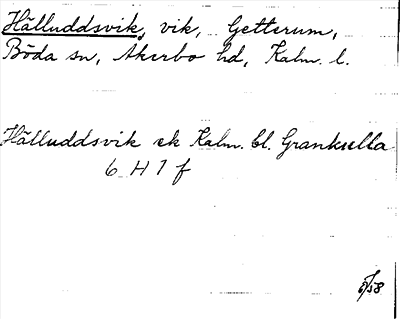 Hälluddsvik, vik, Getterum,
Böda sn, Åkerbo hd, Kalm. l.
Hälluddsvik ek Kalm. bl. Grankulla
6 H 7 f
/58